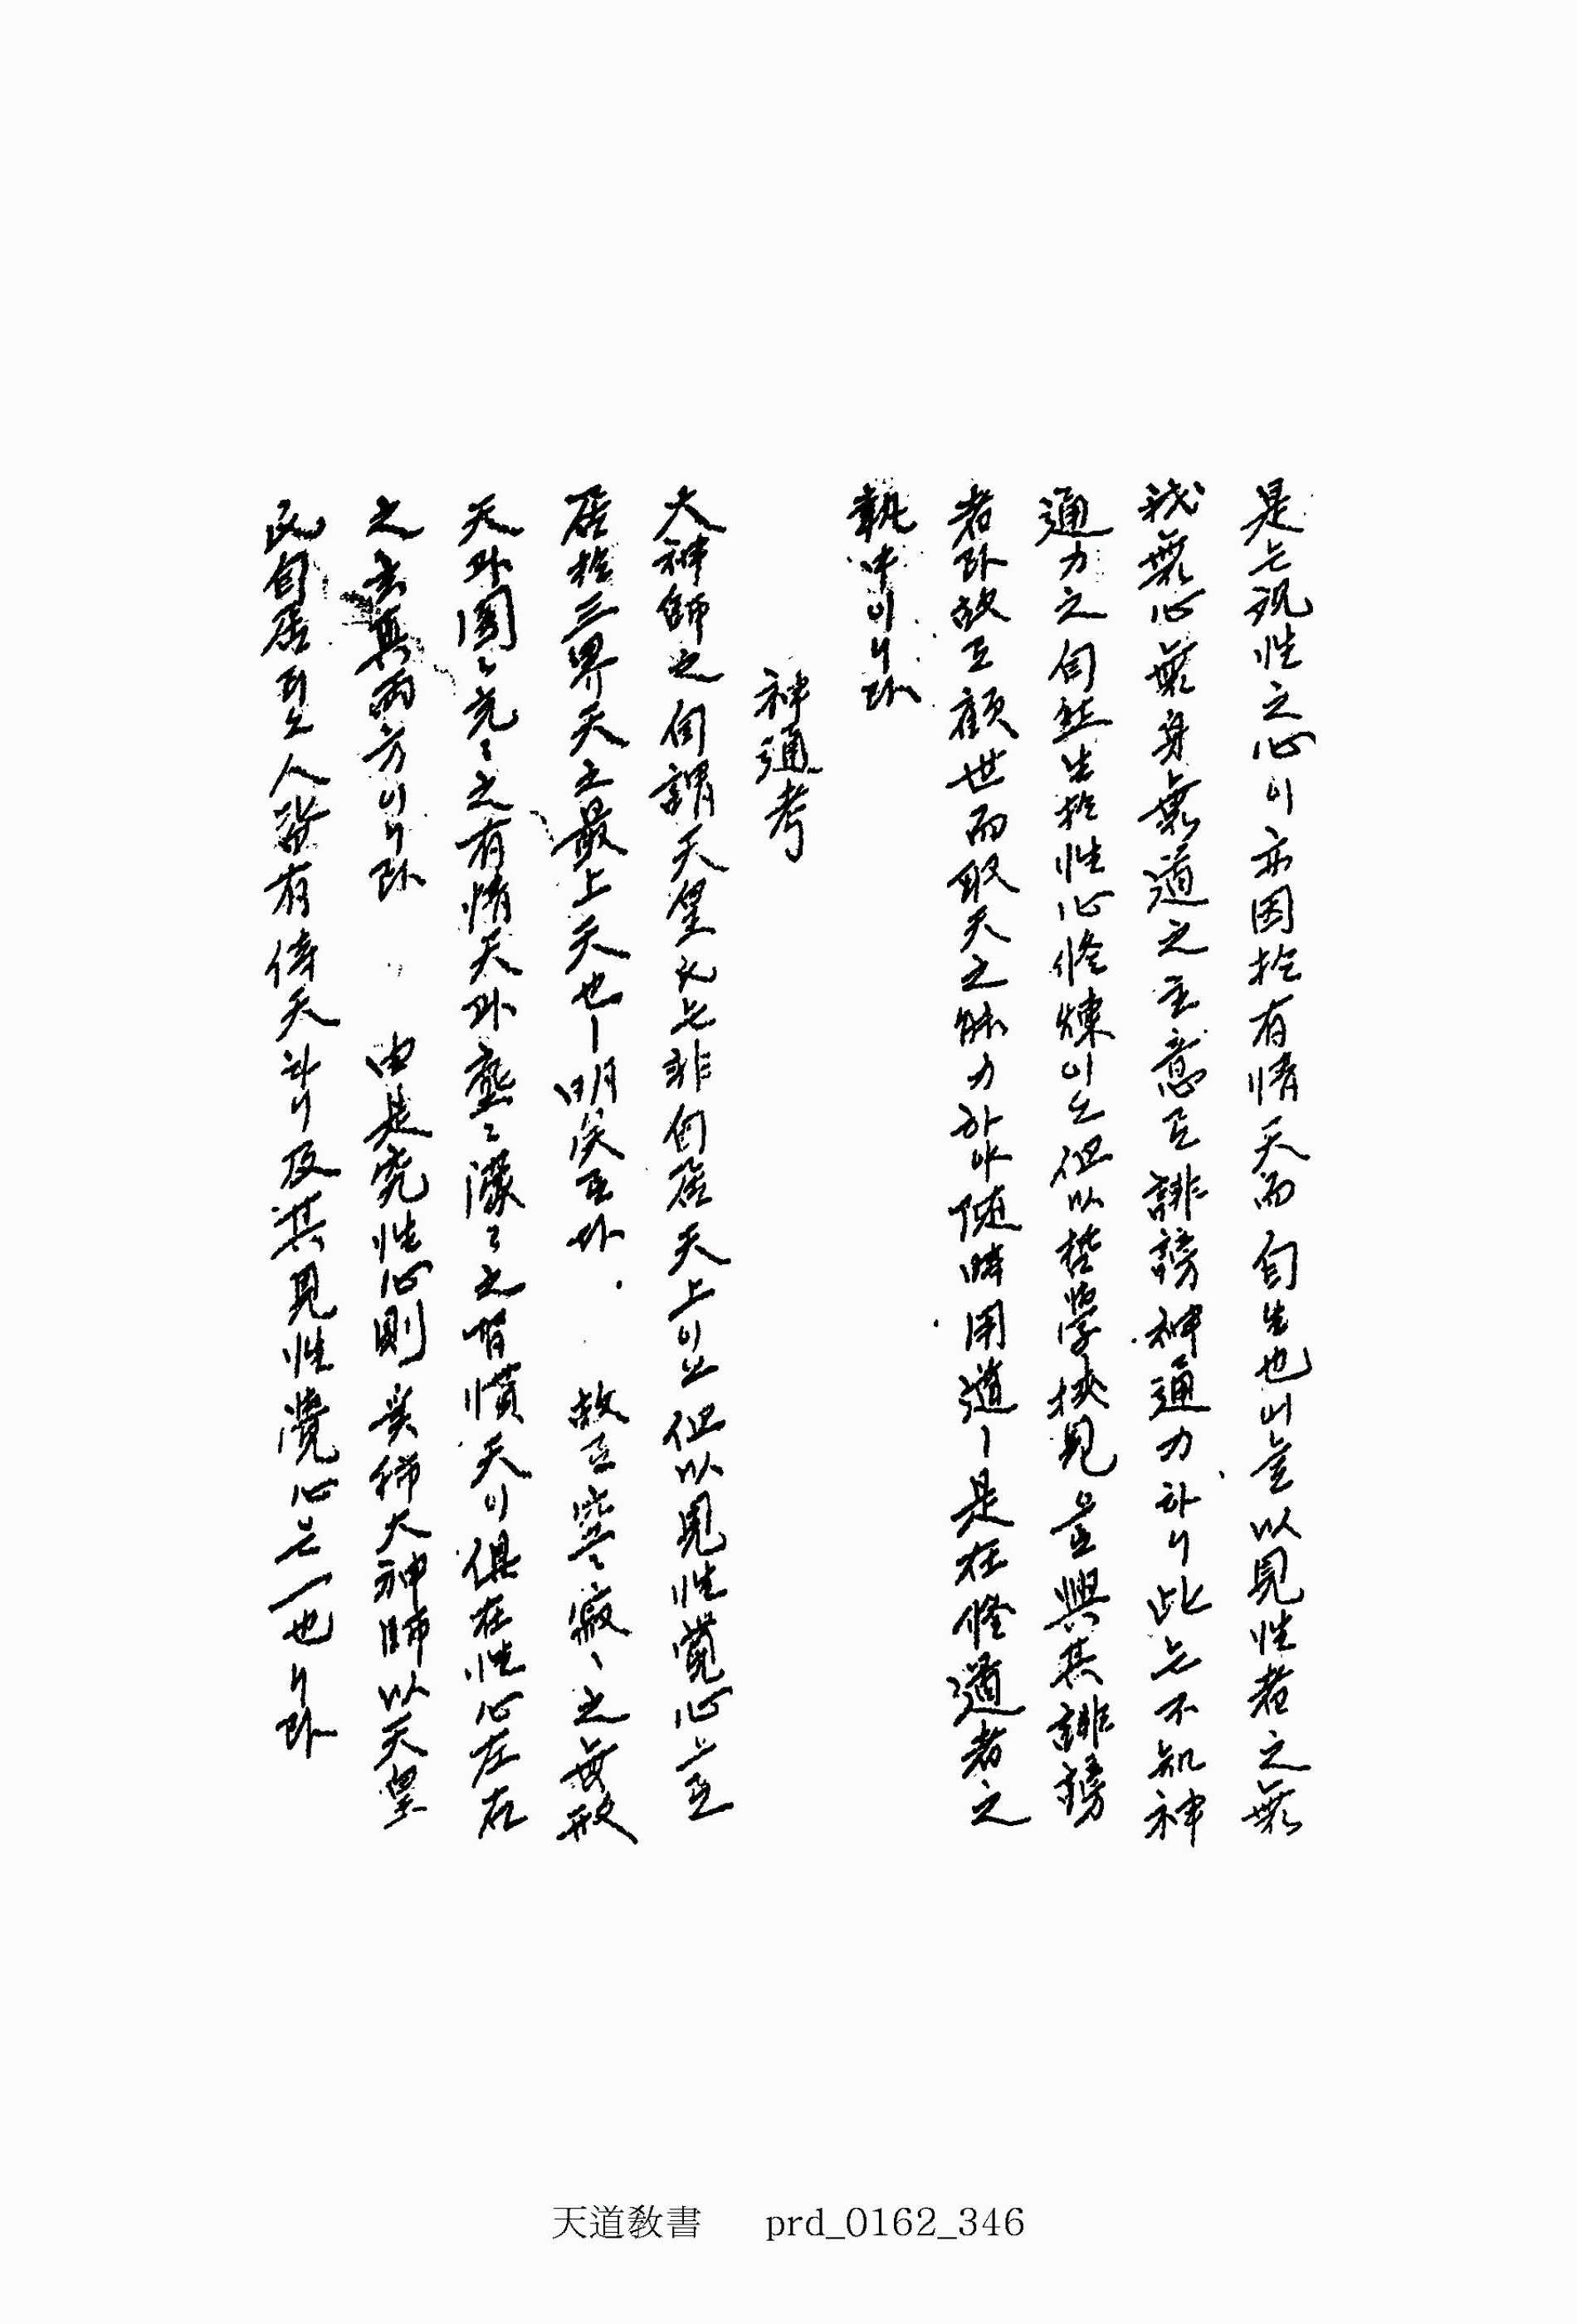 是는現性之心이亦因於有情天而自生也어늘以見性者之無
我無心無身無道之主意로誹謗神通力하니此는不知神
通力之自然生於性心修煉이오但以哲學挾見으로與其誹謗
者라故로顧世而取天之能力하야隨時用道ㅣ是在修道者之
執中이니라
神通考
大神師之自謂天皇氏는非自居天上이오但以見性覺心으로
居於三界天之最上天也ㅣ明矣로라 故로空空寂寂之無形
天과圓圓充充之有情天과塵塵濛濛之習慣天이俱在性心左右
之玄眞兩方이니라 由是究性心則異稱大神師以天皇
氏自居로되人皆有侍天하니及其見性覺心은一也니라
天道敎書 prd_0162_346